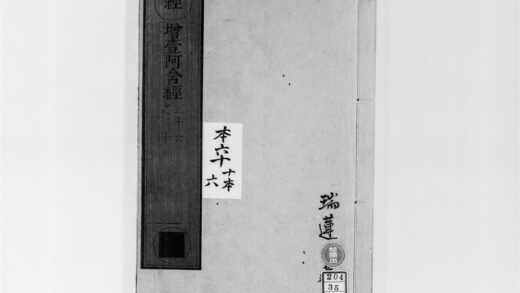 經 增壹阿含經
本六十
十本
六
瑞蓮
204
35